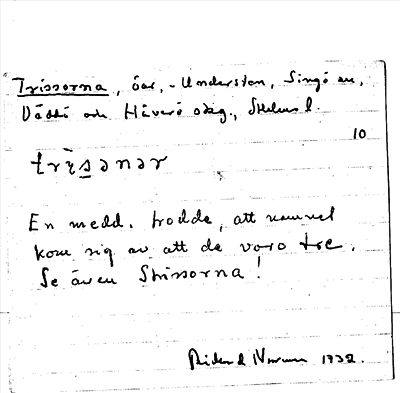 Trissorna, öar, - Understen, Singö sn,
Väddö och Häverö skg., Sthlms l.
10
trìsənər
En medd. trodde, att namnet
kom sig av att de voro tre.
Se även Strissorna!
Rickard Norman 1932.